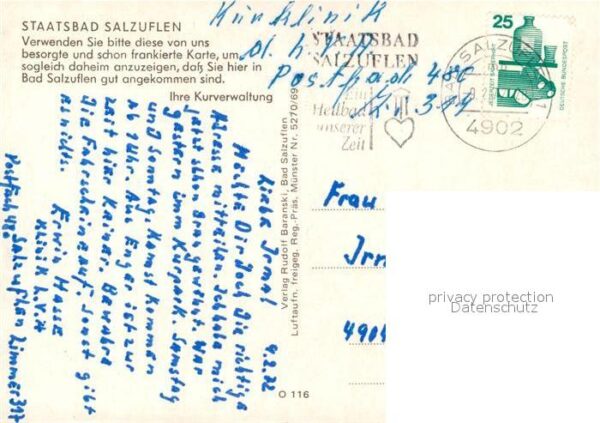 STAATSBAD SALZUFLEN
Verwenden Sie bitte diese von uns
besorgte und schon frankierte Karte, um
sogleich daheim anzuzeigen, daß Sie hier in
Bad Salzuflen gut angekommen sind.
Ihre Kurverwaltung
Kurklinik
Postfach 480
Zi. 317
STAATSBAD
SALZUFLEN
Heilbad
unserer
Zeit
BAD SALZUFLEN 1
4902
25
DEUTSCHE BUNDESPOST
9.2.72
Liebe Irma!
Möchte Dir doch die richtige
Adresse mitteilen. Ich habe mich
jetzt schon
gestern zum Kurpark. Samstag
und Sonntag kannst kommen
ab 1 Uhr. Aus Enger ist zur
Zeit hier Keiner.
Die Fahrscheine auf. Sonst gibt
es nichts.
Erwin
Klinik
Postfach 480 Salzuflen Zimmer 317
Verlag Rudolf Baranski, Bad Salzuflen
Luftaufn. freigeg. Reg.-Präs. Münster Nr. 5270/69
O 116
Frau
Irm
4904
privacy protection
Datenschutz